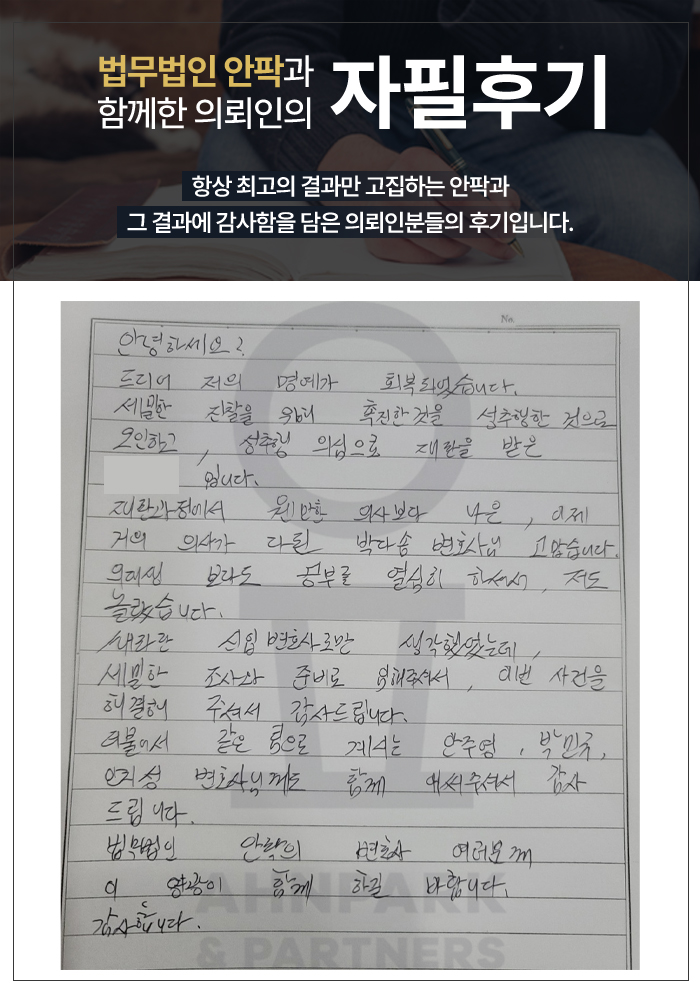 법무법인 안팍과
함께한 의뢰인의
자필후기
항상 최고의 결과만 고집하는 안팍과
그 결과에 감사함을 담은 의뢰인분들의 후기입니다.
No.
안녕하세요?
드디어 저의 명예가 회복되었습니다.
세밀한 진찰을 위해 촉진한것을 성추행한 것으로
오인하고, 성추행 의심으로 재판을 받은
입니다.
재판과정에서 웬만한 의사보다 나은, 이제
거의 의사가 다된 박다솜 변호사님 고맙습니다.
의대생 보다도 공부를 열심히 하셔서, 저도
놀랐습니다.
새파란 신입 변호사로만 생각했었는데,
세밀한 조사와 준비로 임해주셔서, 이번 사건을
해결해 주셔서 감사드립니다.
더불어서 같은 팀으로 계시는 안주영, 박민규,
안지성 변호사님께도 함께 애써주셔서 감사
드립니다.
법무법인 안팍의 변호사 여러분께
이 영광이 함께 하길 바랍니다.
감사합니다.
AHNPARK
& PARTNERS